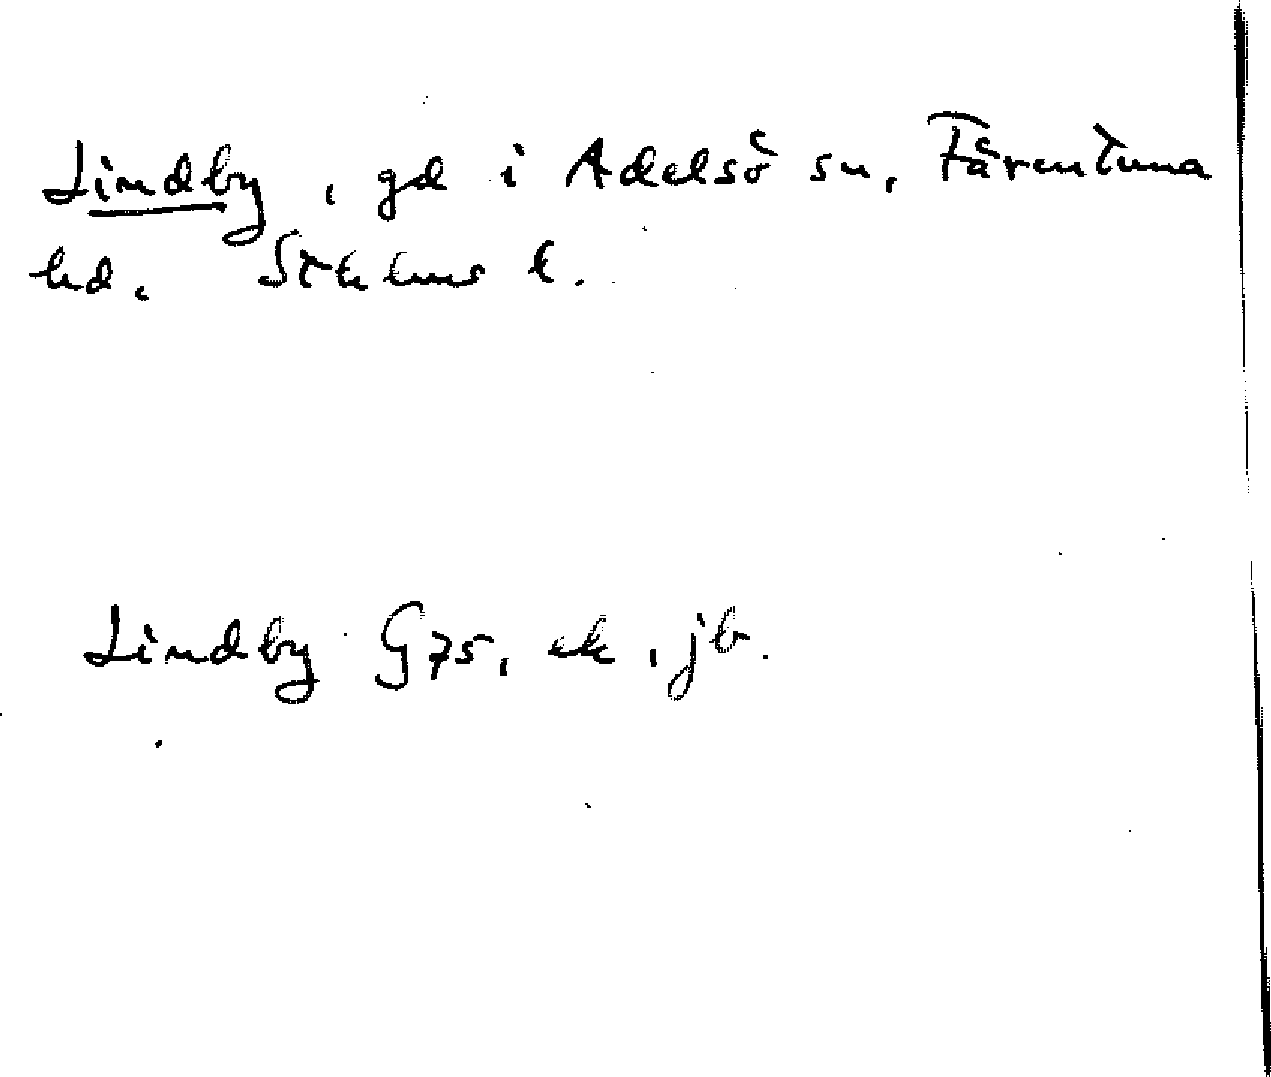 Lindby, gd i Adelsö sn, Färentuna
hd. Sthlms l.
Lindby G 75, ek, jb.